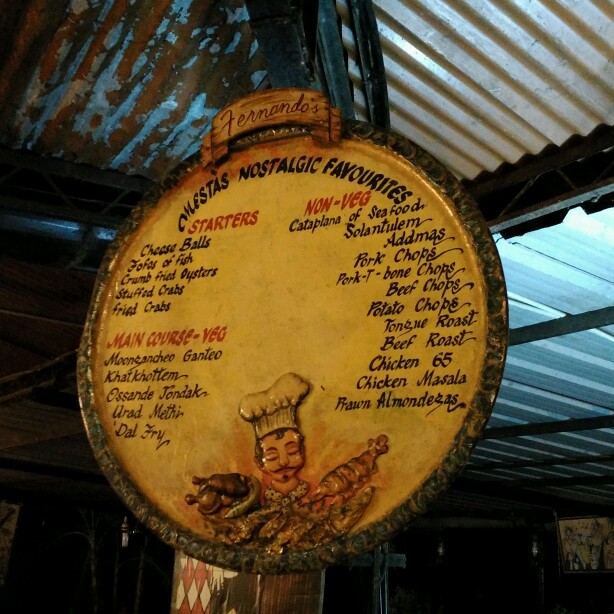 Fernando's
CHLESTAS NOSTALGIC FAVOURITES
STARTERS
Cheese Balls
Fofos of fish
Crumb fried Oysters
Stuffed Crabs
fried Crabs
MAIN COURSE-VEG
Moongancheo Ganteo
Khatkhottem
Ossande Tondak
Urad Methi
Dal Fry
NON-VEG
Cataplana of Seafood
Solantulem
Addmas
Pork Chops
Pork-T-bone Chops
Beef Chops
Potato Chops
Tongue Roast
Beef Roast
Chicken 65
Chicken Masala
Prawn Almondegas